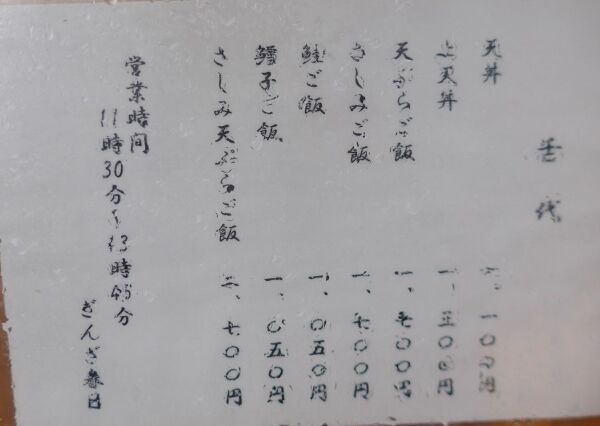 天丼 一、一〇〇円
上天丼 一、三〇〇円
天ぷらご飯 一、七〇〇円
さしみご飯 一、七〇〇円
鮭ご飯 一、〇五〇円
鱈子ご飯 一、〇五〇円
さしみ天ぷらご飯 二、七〇〇円
営業時間
11時30分 時45分
ぎんざ春日